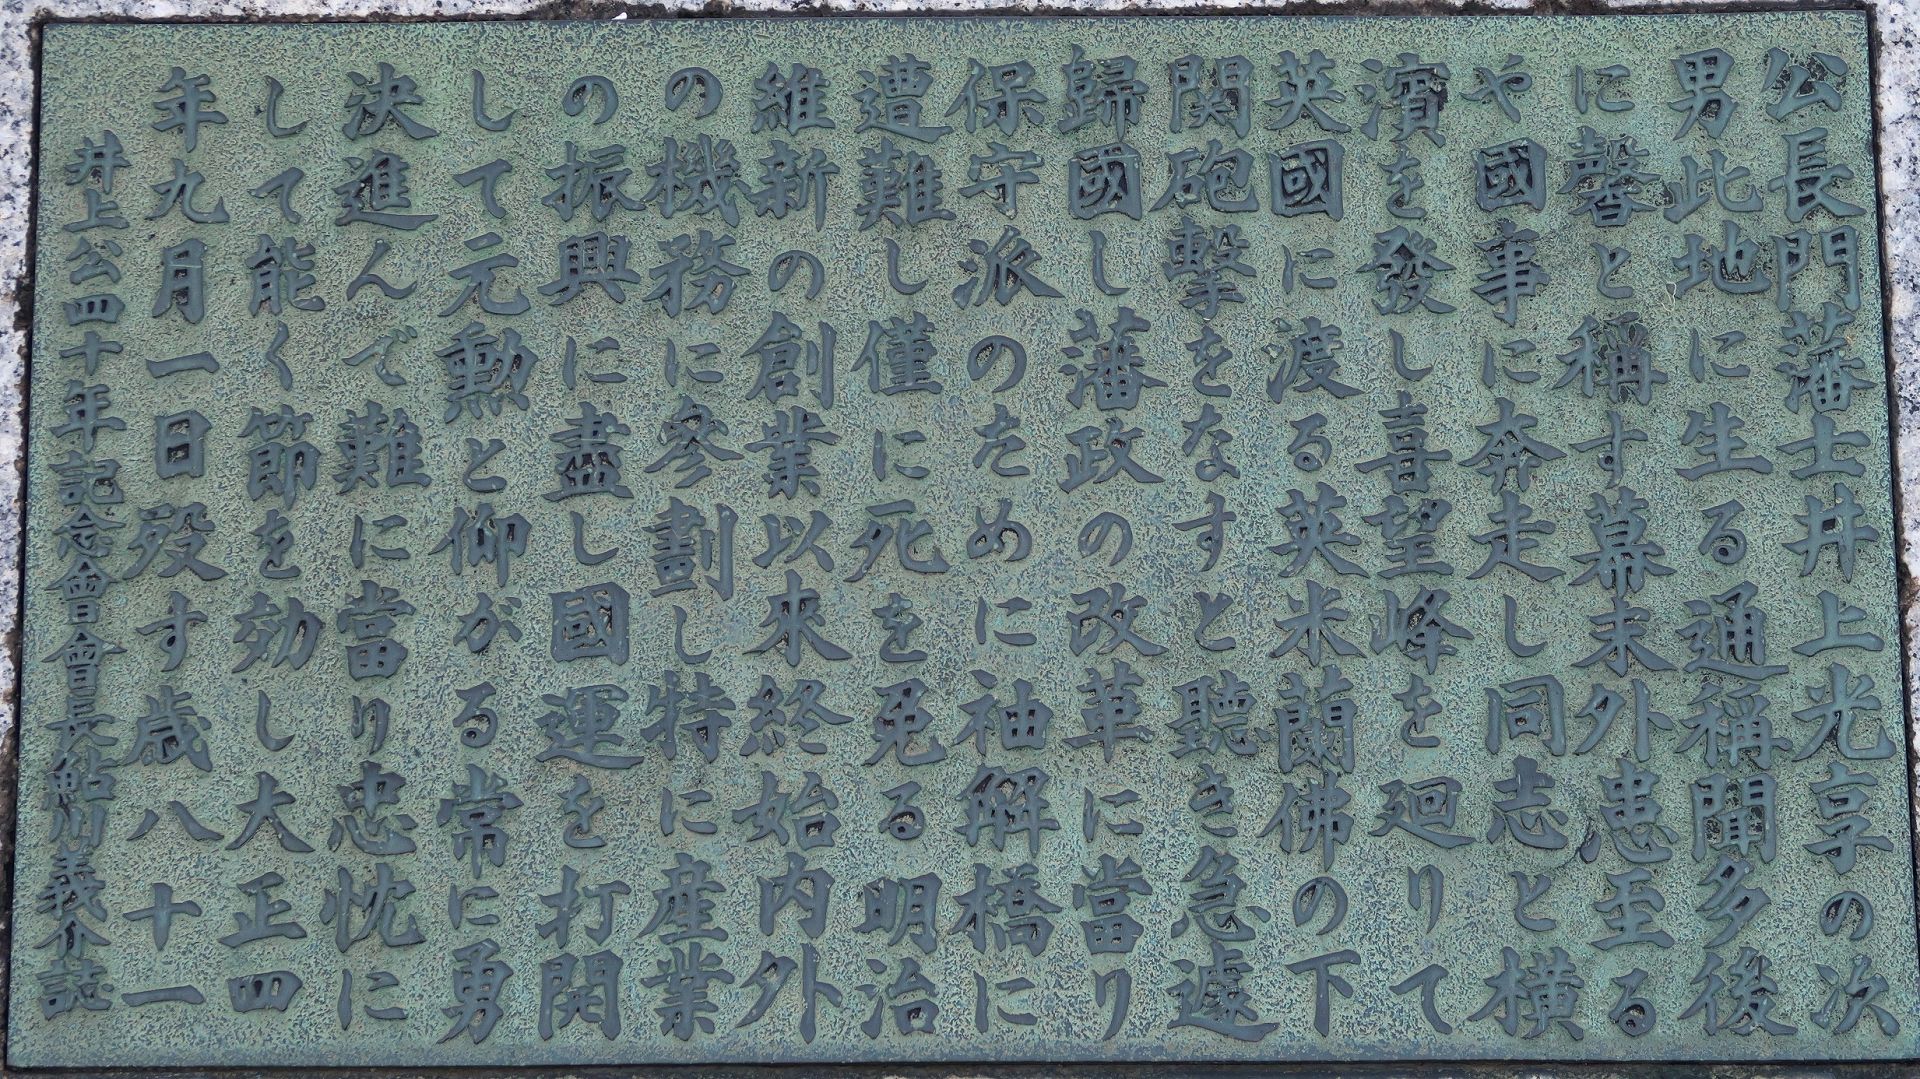 公長門藩士井上光享の次
男此地に生る通稱聞多後
に馨と稱す幕末外患至る
や國事に奔走し同志と横
濱を發し喜望峰を廻りて
英國に渡る英米蘭佛の下
関砲撃をなすと聽き急遽
歸國し藩政の改革に當り
保守派のために袖解橋に
遭難し僅に死を免る明治
維新の創業以来終始内外
の機務に參劃し特に産業
の振興に盡し國運を打開
して元勳と仰がる常に勇
決進んで難に當り忠忱に
して能く節を効し大正四
年九月一日歿す歳八十一
井上公四十年記念會會長鮎川義介誌